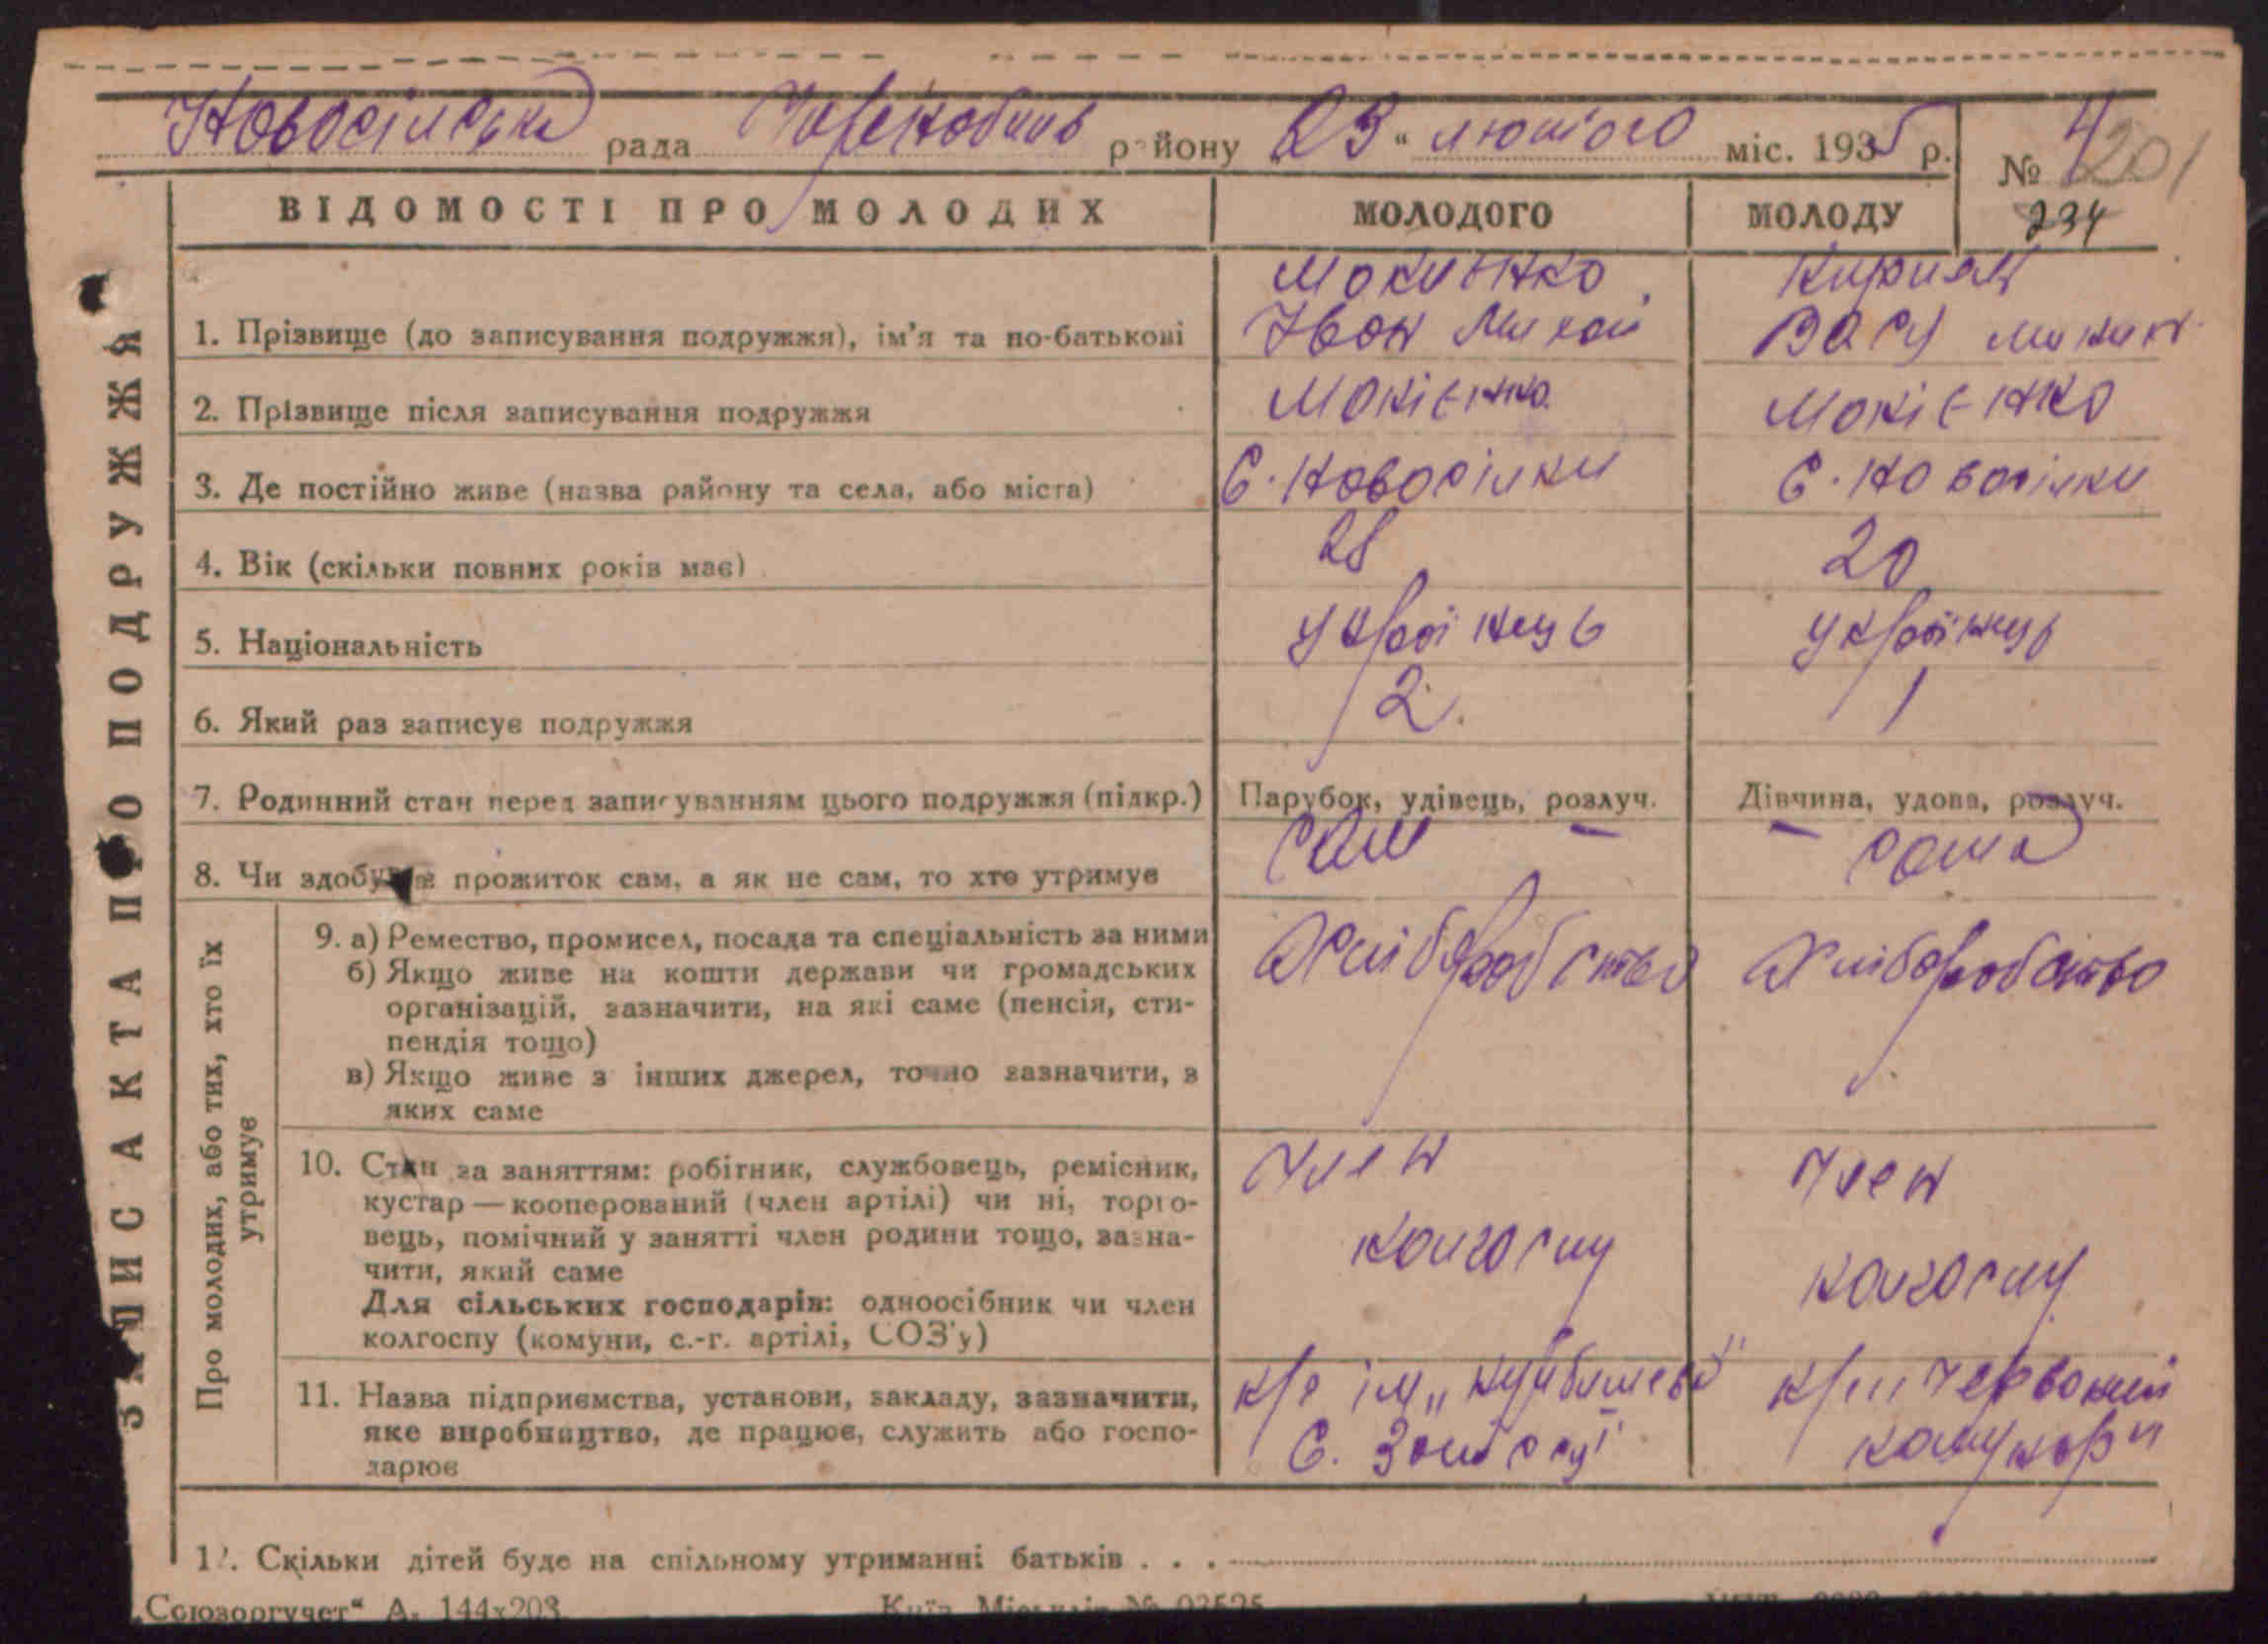 Новосілська рада району „23“ лютого міс. 1935 р. № 4
201
234
ВІДОМОСТІ ПРО МОЛОДИХ МОЛОДОГО МОЛОДУ
Мокиенко
1. Прізвище (до записування подружжя), ім’я та по-батькові Іван Михай
2. Прізвище після записування подружжя Мокієнко Мокієнко
3. Де постійно живе (назва району та села, або міста) С. Новосілки С. Новосілки
4. Вік (скільки повних років має) 28 20
5. Національність українець українець
6. Який раз записує подружжя 2. 1
7. Родинний стан перед записуванням цього подружжя (підкр.) Парубок, удівець, розлуч. Дівчина, удова, розлуч.
8. Чи здобуває прожиток сам, а як не сам, то хто утримує сам сама
9. а) Ремество, промисел, посада та спеціальність за ними Хліборобство Хліборобство
б) Якщо живе на кошти держави чи громадських
організацій, зазначити, на які саме (пенсія, сти-
пендія тощо)
в) Якщо живе з інших джерел, точно зазначити, з
яких саме
10. Стан за заняттям: робітник, службовець, ремісник, Член Член
кустар — кооперований (член артілі) чи ні, торго-
вець, помічний у занятті член родини тощо, зазна- колгоспу колгоспу
чити, який саме
Для сільських господарів: одноосібник чи член
колгоспу (комуни, с.-г. артілі, СОЗ’у)
11. Назва підприємства, установи, закладу, зазначити, к/г ім „Куйбишева“ к/г „Червоний
яке виробництво, де працює, служить або госпо- С.
дарює
12. Скільки дітей буде на спільному утриманні батьків . . .
Про молодих, або тих, хто їх
утримує
ЗАПИС АКТА ПРО ПОДРУЖЖЯ
„Союзоргучет“ А. 144х203